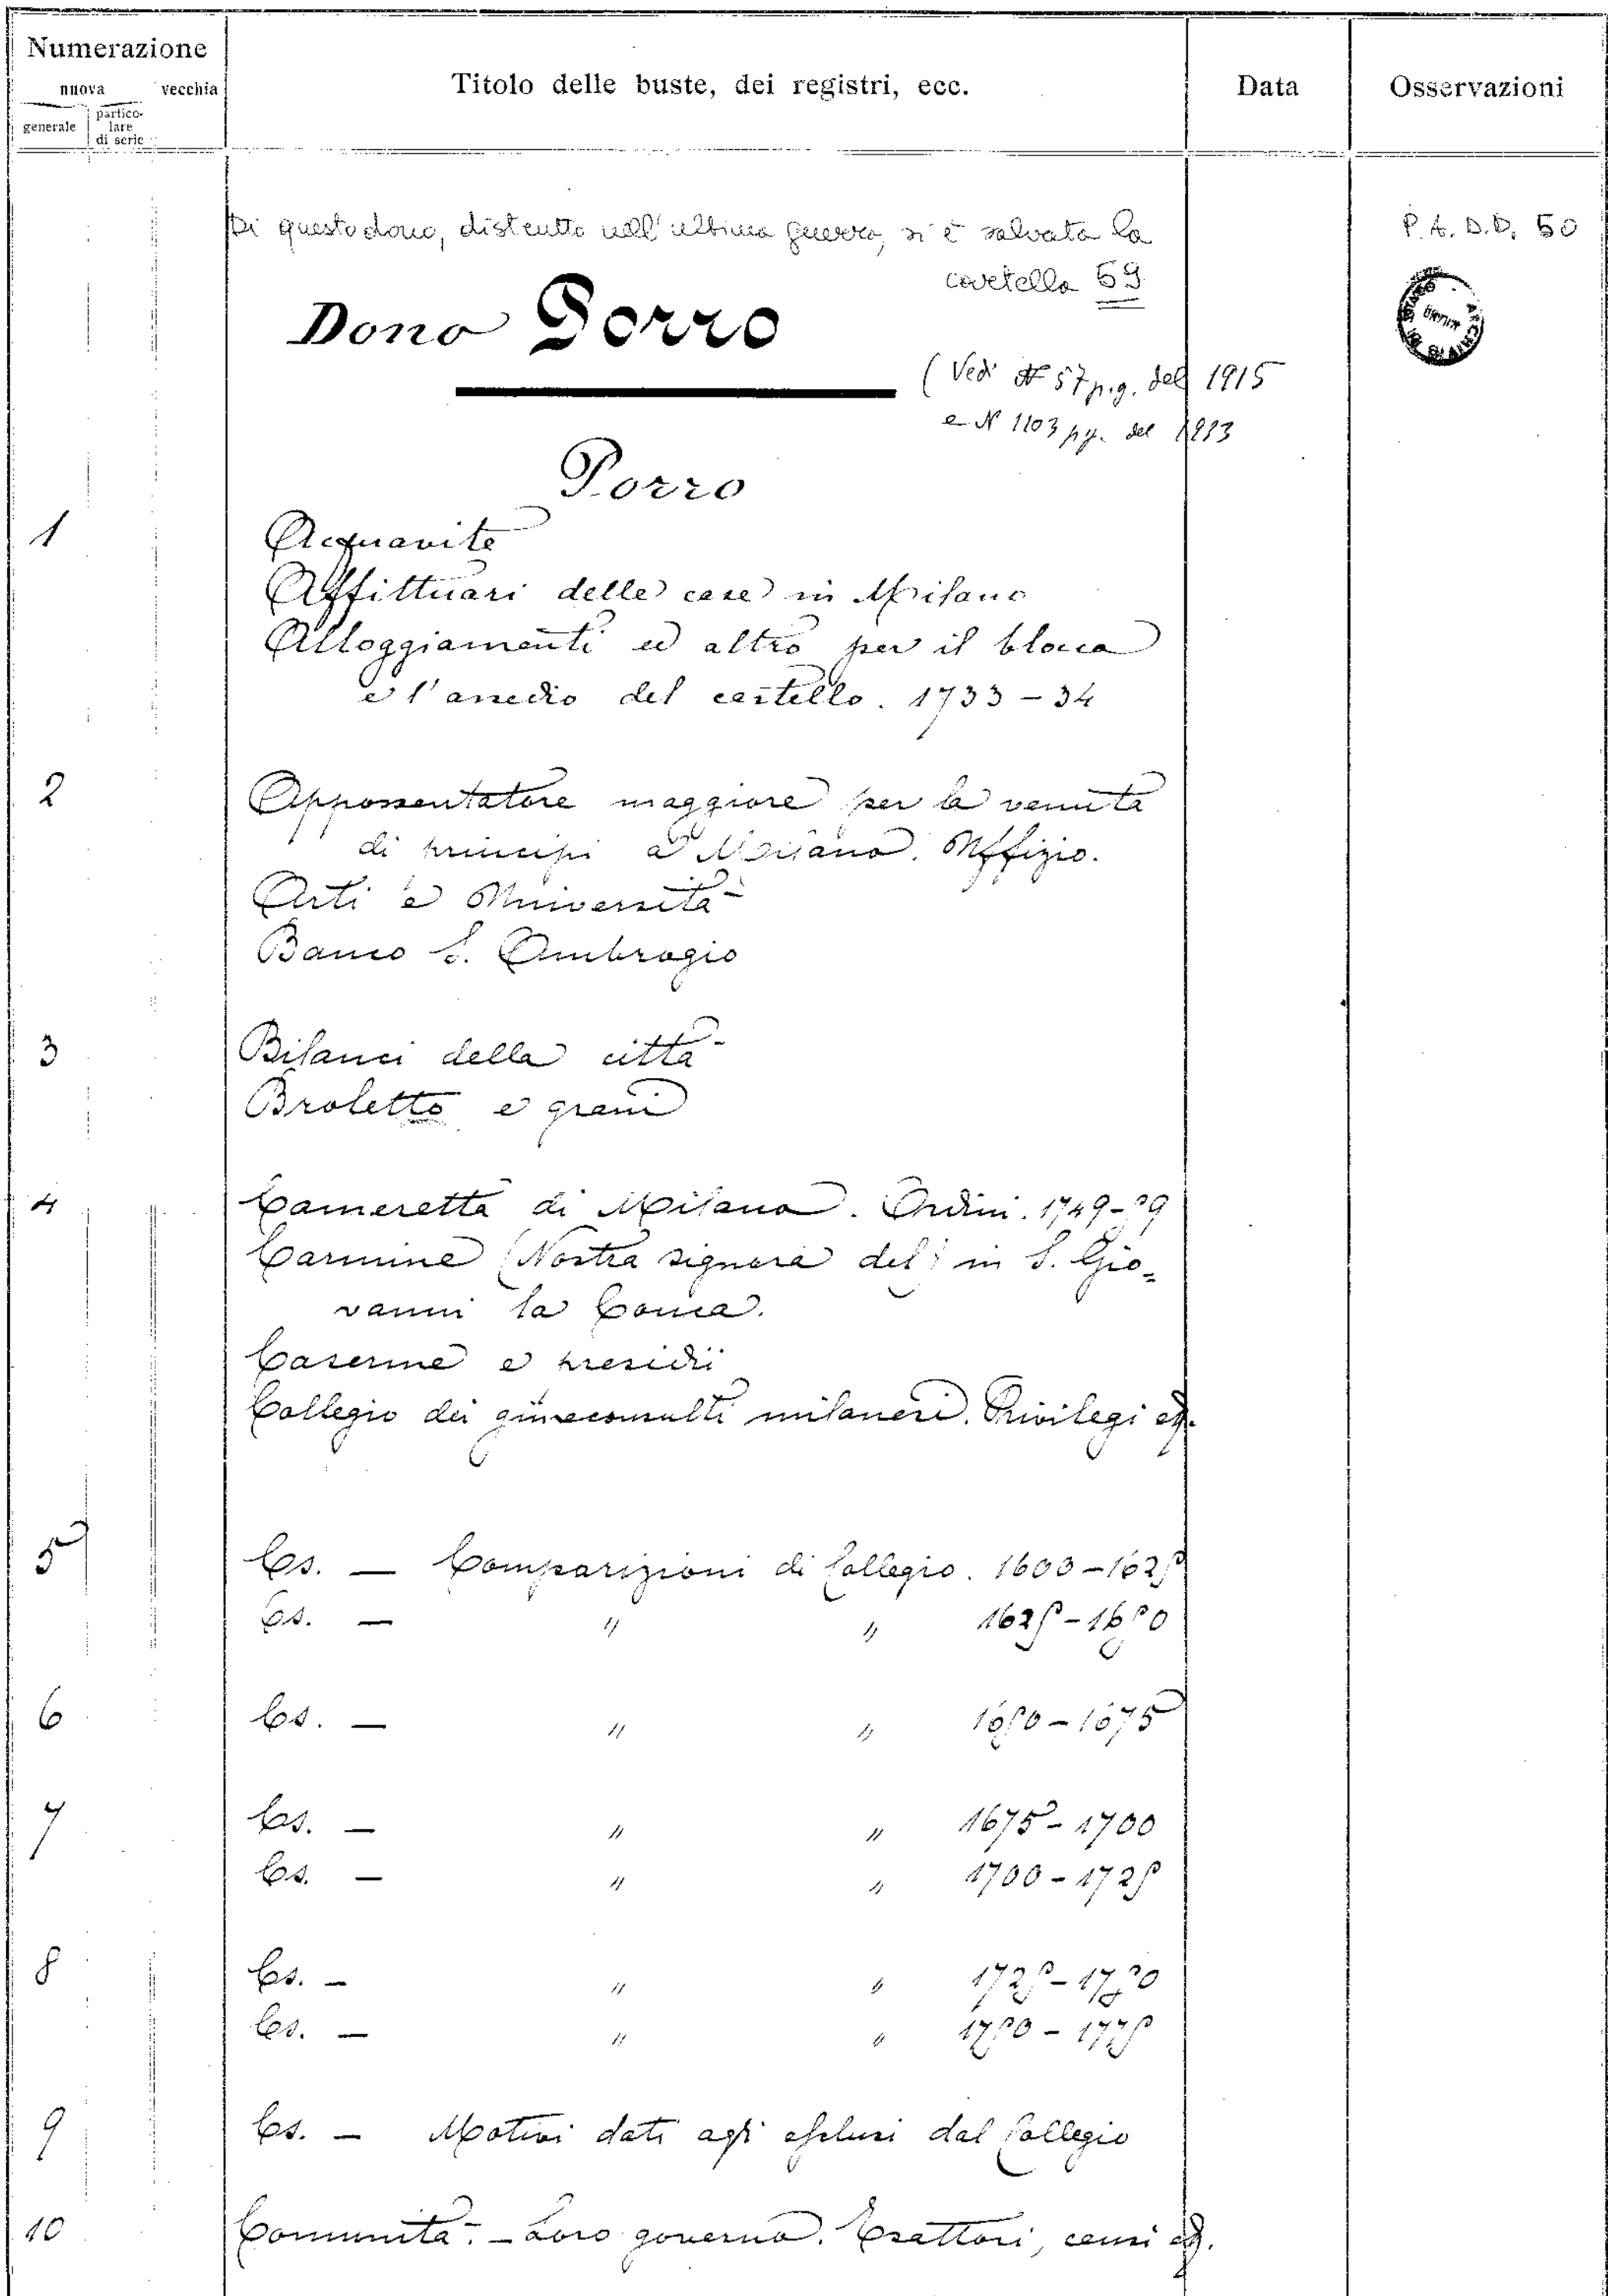 Numerazione
nuova vecchia
generale partico-
lare
di serie
Titolo delle buste, dei registri, ecc.
Data
Osservazioni
Di questo dono, distrutto nell'ultima guerra, si è salvata la
cartella 69
P. A. D. D. 50
Dono Porro
(Vedi N 57 p.g. del 1915
e N 1103 p.g. del
Porro
1 Acquavite
Affittuari delle case in Milano
Alloggiamenti ed altro per il blocco
e l'assedio del castello. 1733-34
2 Appossentatore maggiore per la venuta
di principi a Milano. Uffizio.
Arti e Università
Banco S. Ambrogio
3 Bilanci della città
Broletto e grani
4 Cameretta di Milano. Ordini. 1749-
Carmine (Nostra signora del) in S. Gio-
vanni la Conca.
Caserme e presidii
Collegio dei giureconsulti milanesi. Privilegi ec.
5 Cs. — Comparizioni di Collegio. 1600-1625
Cs. — " " 1625-1650
6 Cs. — " " 1650-1675
7 Cs. — " " 1675-1700
Cs. — " " 1700-1725
8 Cs. — " " 1725-1750
Cs. — " " 1750-1775
9 Cs. — Motivi dati agli esclusi dal Collegio
10 Comunità. — Loro governo. Esattori, censi ec.